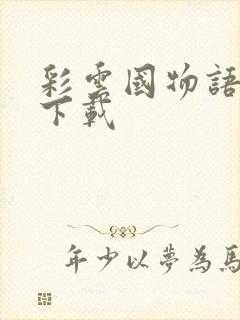 彩雲國物語
下載
年少以夢為馬